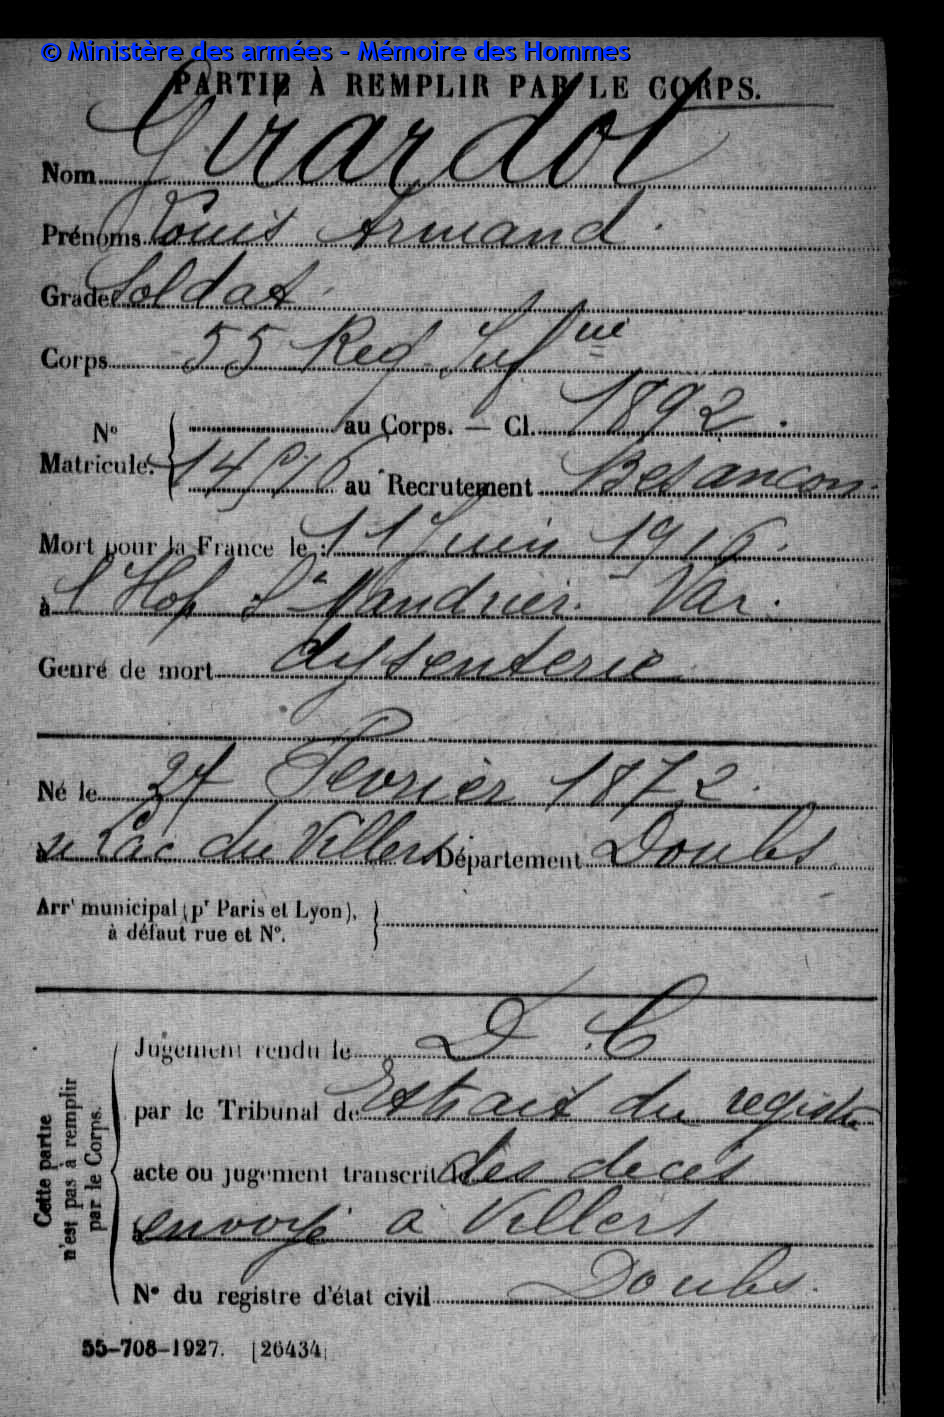 © Ministère des armées - Mémoire des Hommes
PARTIE À REMPLIR PAR LE CORPS.
Nom Girardot
Prénoms Louis Armand
Grade Soldat
Corps 55 Reg Inf rie
N° Matricule. au Corps. — Cl. 1892.
au Recrutement Besancon
Mort pour la France le : 11 Juin 1916.
à l'Hop St Mandrier. Var.
Genre de mort dysenterie
Né le 27 Fevrier 1872.
à Lac du Villers Département Doubs
Arrt municipal (pr Paris et Lyon),
à défaut rue et N°.
Cette partie
n'est pas à remplir
par le Corps.
Jugement rendu le D. C
par le Tribunal de Extrait du registre
acte ou jugement transcrit le des deces
envoyé à Villers
N° du registre d'état civil Doubs.
55-708-1927. [26434]